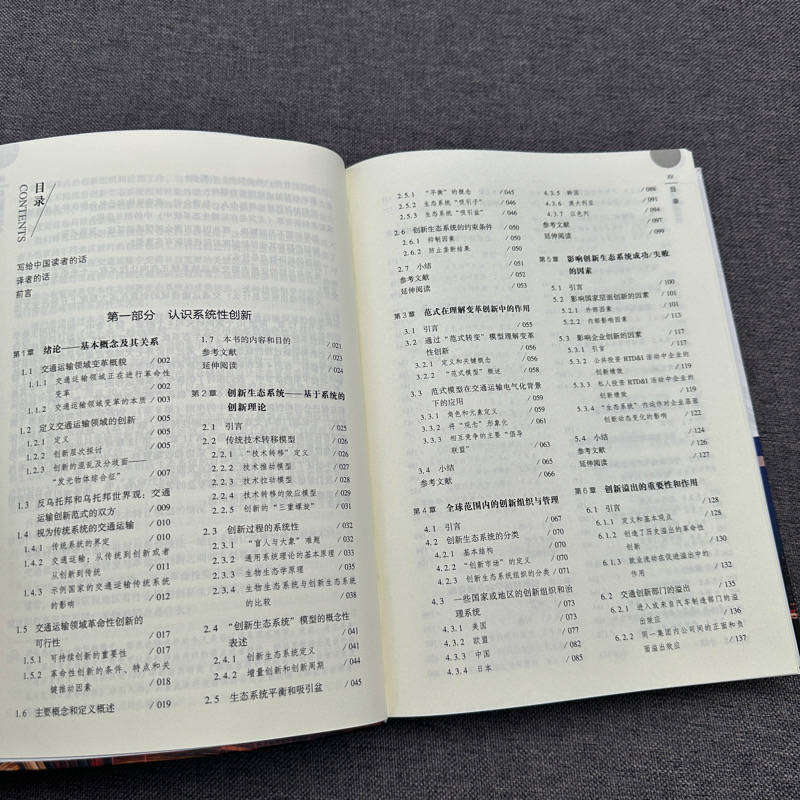 目录
CONTENTS
写给中国读者的话
译者的话
前言
第一部分 认识系统性创新
第1章 绪论——基本概念及其关系
1.1 交通运输领域变革概貌 / 002
1.1.1 交通运输领域正在进行革命性
变革 / 002
1.1.2 交通运输领域变革的本质 / 003
1.2 定义交通运输领域的创新 / 005
1.2.1 定义 / 005
1.2.2 创新层次探讨 / 005
1.2.3 创新的混乱及分歧面——
“发光物体综合征” / 007
1.3 反乌托邦和乌托邦世界观：交通
运输创新范式的双方 / 009
1.4 视为传统系统的交通运输 / 010
1.4.1 传统系统的界定 / 010
1.4.2 交通运输：从传统到创新或者
从创新到传统 / 011
1.4.3 示例国家的交通运输传统系统
的影响 / 012
1.5 交通运输领域革命性创新的
可行性 / 017
1.5.1 可持续创新的重要性 / 017
1.5.2 革命性创新的条件、特点和关
键推动因素 / 018
1.6 主要概念和定义概述 / 019
1.7 本书的内容和目的 / 021
参考文献 / 023
延伸阅读 / 024
第2章 创新生态系统——基于系统的
创新理论
2.1 引言 / 025
2.2 传统技术转移模型 / 026
2.2.1 “技术转移”定义 / 026
2.2.2 技术推动模型 / 026
2.2.3 技术拉动模型 / 027
2.2.4 技术转移的效应模型 / 028
2.2.5 创新的“三重螺旋” / 031
2.3 创新过程的系统性 / 032
2.3.1 “盲人与大象”难题 / 032
2.3.2 通用系统理论的基本原理 / 033
2.3.3 生物生态学原理 / 035
2.3.4 生物生态系统与创新生态系统
的比较 / 038
2.4 “创新生态系统”模型的概念性
表述 / 041
2.4.1 创新生态系统定义 / 041
2.4.2 增量创新和创新周期 / 044
2.5 生态系统平衡和吸引盆 / 045
2.5.1 “平衡”的概念 / 045
2.5.2 生态系统“吸引子” / 045
2.5.3 生态系统“吸引盆” / 046
2.6 创新生态系统的约束条件 / 050
2.6.1 抑制因素 / 050
2.6.2 防止垄断结果 / 050
2.7 小结 / 051
参考文献 / 052
延伸阅读 / 053
第3章 范式在理解变革创新中的作用
3.1 引言 / 055
3.2 通过“范式转变”模型理解变革
性创新 / 056
3.2.1 定义和关键概念 / 057
3.2.2 “范式模型”概述 / 057
3.3 范式模型在交通运输电气化背景
下的应用 / 058
3.3.1 角色和元定义 / 059
3.3.2 将“观念”形象化 / 061
3.3.3 相互竞争的主要“倡导
联盟” / 063
3.4 小结 / 065
参考文献 / 066
第4章 全球范围内的创新组织与管理
4.1 引言 / 067
4.2 创新生态系统的分类 / 070
4.2.1 基本结构 / 070
4.2.2 “创新市场”的定义 / 071
4.2.3 创新生态系统组织的分类 / 071
4.3 一些国家或地区的创新组织和治
理系统 / 073
4.3.1 美国 / 073
4.3.2 欧盟 / 077
4.3.3 中国 / 082
4.3.4 日本 / 085
目录
4.3.5 韩国 / 088
4.3.6 澳大利亚 / 091
4.3.7 以色列 / 094
参考文献 / 097
延伸阅读 / 099
第5章 影响创新生态系统成功/失败
的因素
5.1 引言 / 100
5.2 影响国家层面创新的因素 / 101
5.2.1 外部因素 / 101
5.2.2 内部影响因素 / 113
5.3 影响企业创新的因素 / 117
5.3.1 引言 / 117
5.3.2 公共投资 RTD&I 活动中企业的
创新绩效 / 117
5.3.3 私人投资 RTD&I 活动中企业的
创新绩效 / 119
5.3.4 “生态系统”内运作对企业层面
创新动态变化的影响 / 122
5.4 小结 / 124
参考文献 / 126
延伸阅读 / 127
第6章 创新溢出的重要性和作用
6.1 引言 / 128
6.1.1 定义和基本观点 / 128
6.1.2 创造了历史溢出的革命性
创新 / 130
6.1.3 就业流动在促进溢出中的
作用 / 132
6.2 交通创新部门的溢出 / 135
6.2.1 进入或来自汽车制造部门的溢
出效应 / 136
6.2.2 同一集团内公司间的正面和负
面溢出效应 / 137